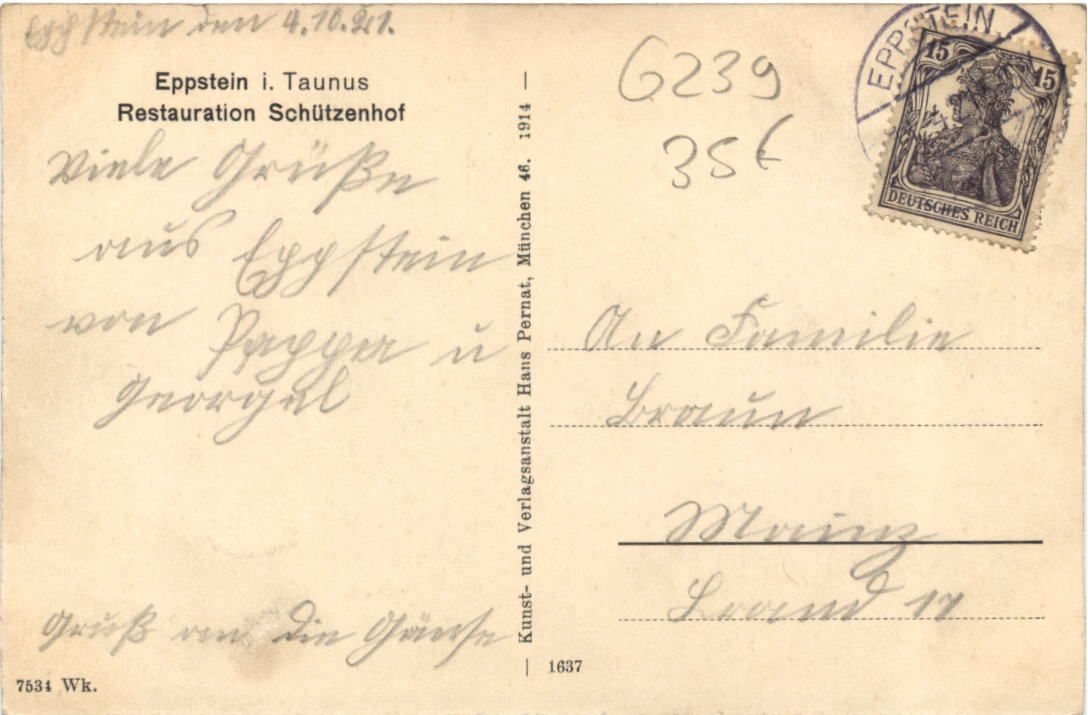 Eppstein den 4.10.21.
Eppstein i. Taunus
Restauration Schützenhof
Viele Grüße
aus Eppstein
von Pepper u
Georgel
Gruß an die Gänse
7534 Wk.
Kunst- und Verlagsanstalt Hans Pernat, München 46. 1914
1637
G239
35€
EPPSTEIN
15 15
DEUTSCHES REICH
An Familie
Braun
Mainz
Brand 17